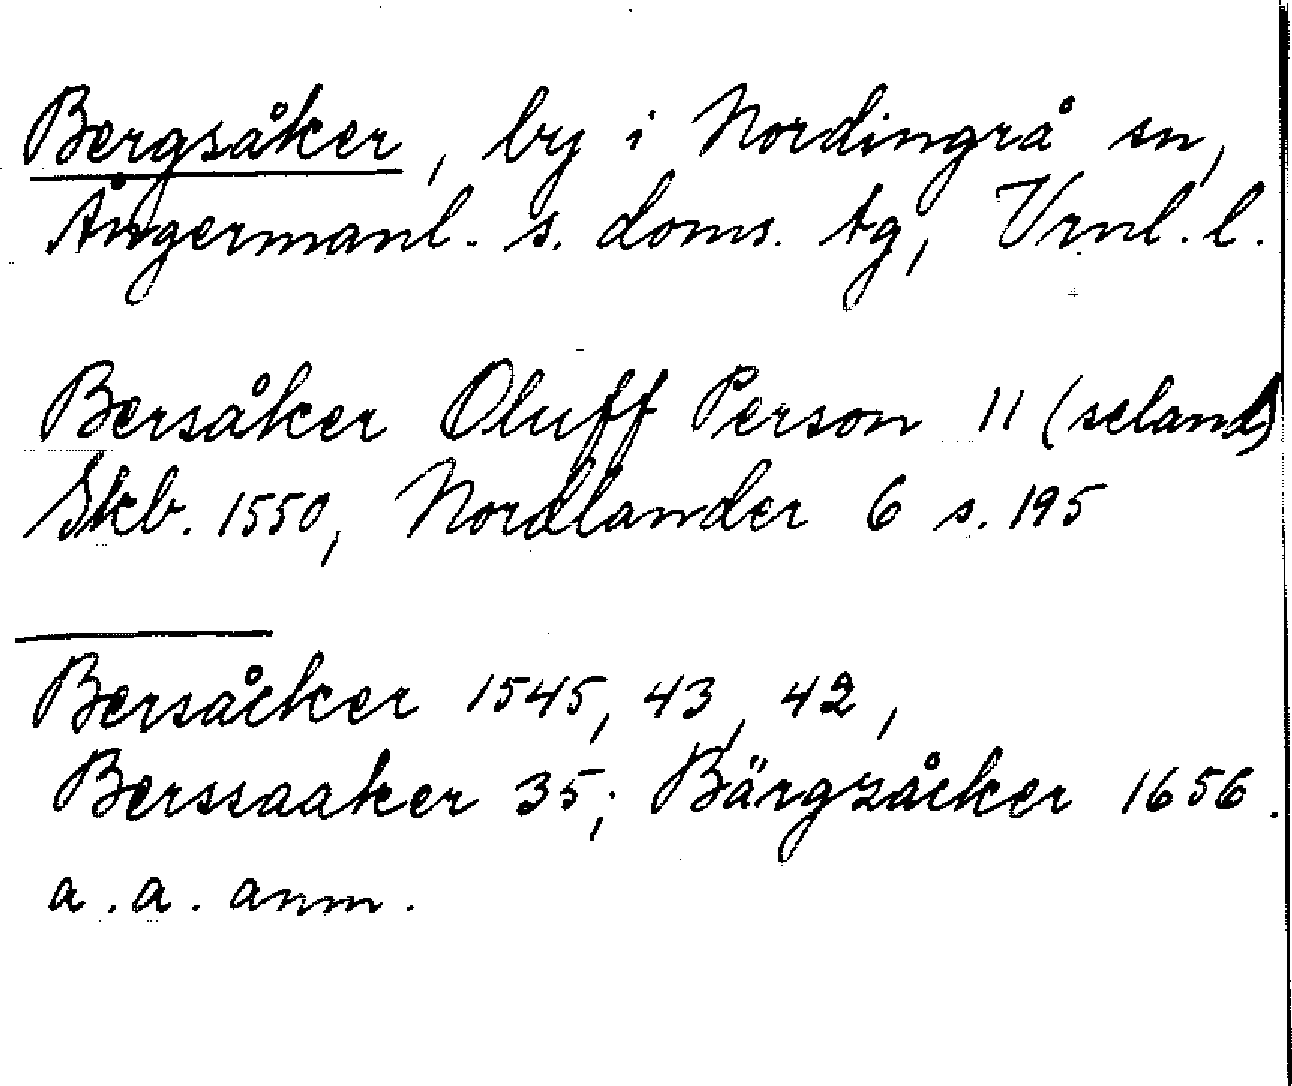 Bergsåker, by i Nordingrå sn,
Ångermanl. s. doms. tg, Vrnl. l.
Bersåker Oluff Person 11 (seland)
Skb. 1550, Nordlander 6 s. 195
Bersåcker 1545, 43, 42,
Berssaaker 35; Bärgzåcker 1656.
a. a. anm.